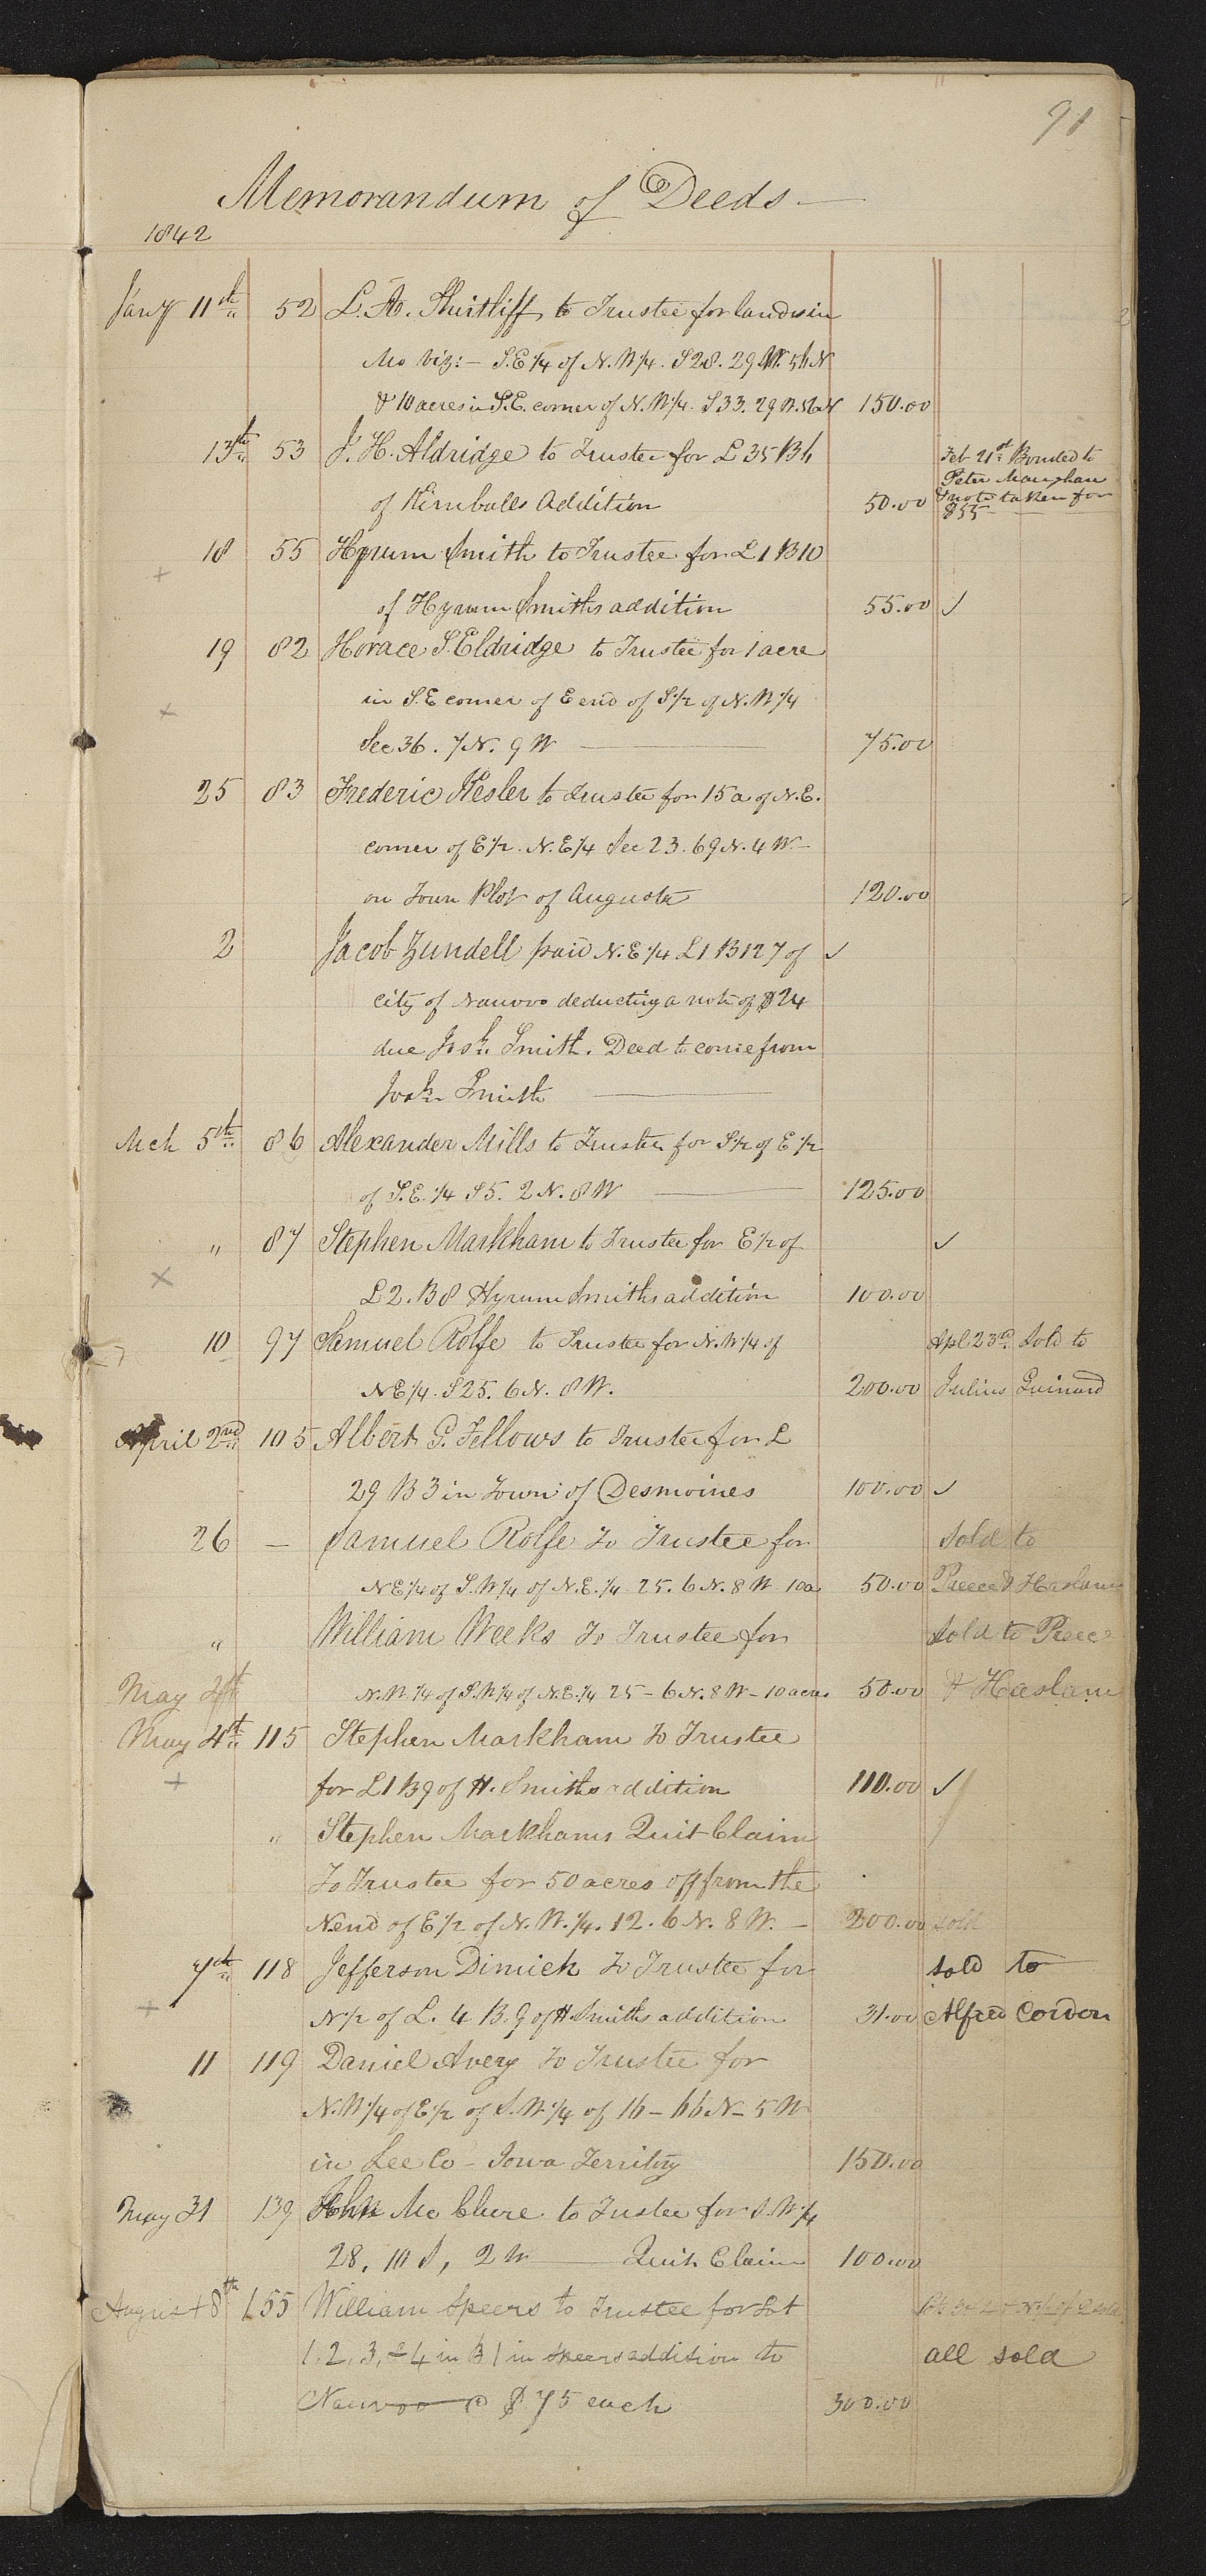 91
Memorandum of Deeds
1842
Jany 11th 52 L. A. Shirtliff to Trustee for lands in
Mo Viz:- S.E 1/4 of N.W 1/4. S 28. 29 W. 56 N
& 10 acres in S.E. corner of N.W 1/4. S 33. 29 W. 56 N 150.00
13th 53 J. H. Aldridge to Trustee for L 35 B 4 Feb 21st Bonded to
Peter Maughan
of Kimballs Addition 50.00 & note taken for
$55
18 55 Hyrum Smith to Trustee for L 1 B 10
of Hyrum Smiths addition 55.00 ✓
19 82 Horace S. Eldridge to Trustee for 1 acre
in S.E corner of E end of S 1/2 of N.W 1/4
Sec 36. 7 N. 9 W 75.00
25 83 Frederic Kesler to Trustee for 15 a of N.E.
corner of E 1/2. N.E 1/4 Sec 23. 69 N. 4 W.
on Town Plot of Augusta 120.00
2 Jacob Zundell paid N.E 1/4 L 1 B 127 of ✓
city of Nauvoo deducting a note of $24
due Josh. Smith. Deed to come from
Josh. Smith
Mch 5th 86 Alexander Mills to Trustee for S 1/2 of E 1/2
of S.E. 1/4 S 5. 2 N. 8 W 125.00
" 87 Stephen Markham to Trustee for E 1/2 of ✓
L 2. B 8 Hyrum Smiths addition 100.00
10 97 Samuel Rolfe to Trustee for N.W 1/4 of Apl 23rd. Sold to
N E 1/4. S 25. 6 N. 8 W. 200.00 Julius Guinard
April 2nd 105 Albert G. Fellows to Trustee for L
29 B 3 in Town of Desmoines 100.00 ✓
26 — Samuel Rolfe To Trustee for Sold to
N E 1/4 of S.W 1/4 of N.E. 1/4 25. 6 N. 8 W 10 a 50.00 Preece & Haslam
" William Weeks To Trustee for Sold to Preece
May 4th N.W. 1/4 of S.W 1/4 of N.E. 1/4 25 - 6 N. 8 W - 10 acres 50.00 & Haslam
May 4th 115 Stephen Markham To Trustee
for L 1 B 9 of H. Smiths addition 110.00 ✓
" Stephen Markhams Quit Claim
To Trustee for 50 acres off from the
N end of E 1/2 of N.W. 1/4. 12. 6 N. 8 W. 200.00 sold
7th 118 Jefferson Dimick To Trustee for sold to
N 1/2 of L. 4 B. 9 of H. Smiths addition 31.00 Alfred Cordon
11 119 Daniel Avery To Trustee for
N.W 1/4 of E 1/2 of S.W 1/4 of 16 - 66 N - 5 W
in Lee Co - Iowa Territoy 150.00
May 31 139 John Mc Clure to Tustee for S.W 1/4
28, 10 S, 2 W Quit Claim 100.00
August 8th 155 William Speers to Trustee for Lot
1. 2, 3, & 4 in B 1 in Speers addition to all sold
Nauvoo @ $75 each 300.00